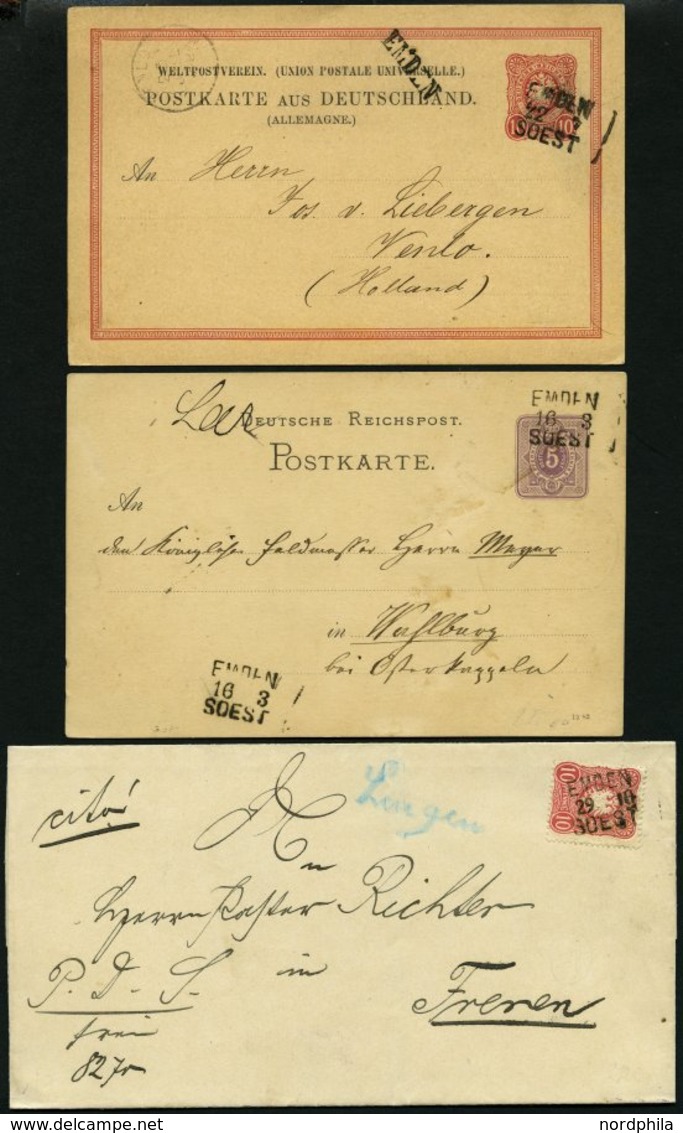 EMDEN
WELTPOSTVEREIN. (UNION POSTALE UNIVERSELLE.)
POSTKARTE AUS DEUTSCHLAND.
(ALLEMAGNE.)
10
EMDEN
22 3
SOEST
An Herrn
Jos. v. Liebergen
Venlo.
(Holland)
EMDEN
16 3
SOEST
Lar
DEUTSCHE REICHSPOST.
POSTKARTE.
5
An
den Königlichen Feldmesser Herrn Meyer
in Wahlburg
bei Osterkappeln
EMDEN
16 3
SOEST
cito!
Lingen
10
EMDEN
29 10
SOEST
10
Herrn Pastor Richter
P. D. S. in Freren
frei
827r
nordphila